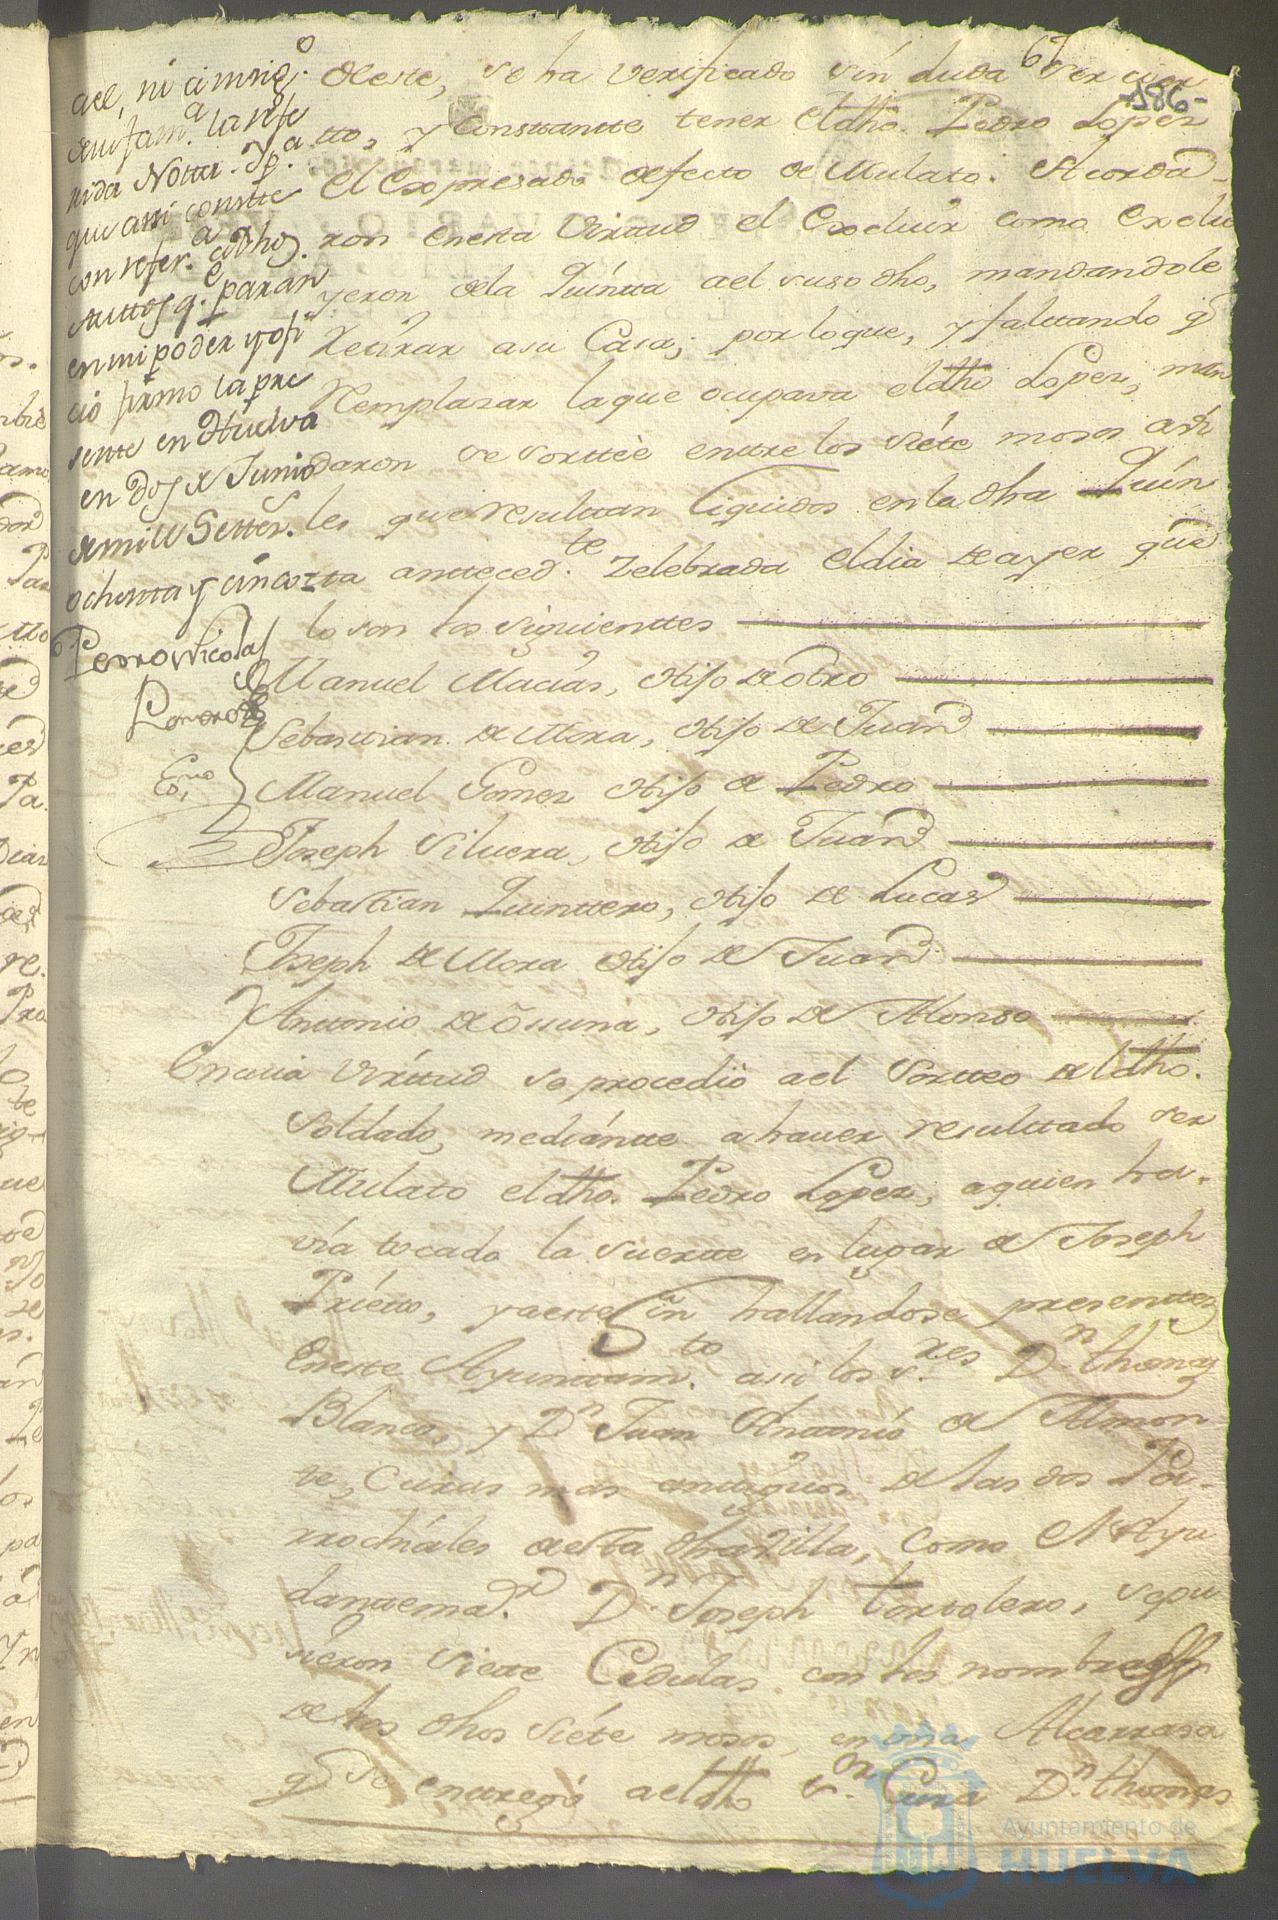 67
186-
ael, ni a mrio.
de su fam.ª la refe
rida Notta. Y p.ª
que assi conste
con refer.ª a dhos.
Auttos q.e paran
en mi poder y ofi
cio firmo la pre
sente en Huelva
en dos de Junio
de mill Settes.
ochenta y cinco
Pedro Nicolas
Romero
Esno
deste, se ha verificado sin duda ser cier
tto, y Constantte tener el dho. Pedro Lopez
el Expresado defecto de Mulato. Acorda-
ron en esta Virtud el Excluir como Exclu
yeron de la Quintta ael suso dho, mandandole
Retirar a su Casa; por lo que, y faltando q.e
Remplasar la que ocupava el dho Lopez, man
daron se sorttèe enttre los siéte mosos
les que resulttan Liquidos en la dha Quin
ta anttecedte. Zelebrada el dia de ayer que
lo son los siguienttes
Manuel Macias, Hijo de otro
Sebasttian de Mora, Hijo de Juan
Manuel Gomez Hijo de Pedro
Joseph Silvera, Hijo de Juan
Sebastian Quinttero, Hijo de Lucas
Joseph de Mora Hijo de Juan
Y Anttonio de Ossuna, Hijo de Alonso
En cuia Virttud se procediò ael Sortteo del dho.
Soldado, mediántte a haver resulttado ser
Mulato el dho. Pedro Lopez, a quien ha-
vía tocado la suertte en lugar de Joseph
Priétto, y a este fin hallandose presenttes
En este Ayunttam.to asi los S.res D.n thomas
Blanco, y D.n Juan Anttonio de Almon
te, Curas mas anttiguos de las dos Pa-
rrochiáles de esta dha Villa, como el Ayu
dante D.n Joseph torttolero, se pu
siéron siette Cedulas con los nombres
de los dhos siéte mosos, en una Alcarrasa
q.e se enttregó ael dho S.or Cura D.n thomas
Ayuntamiento de
HUELVA